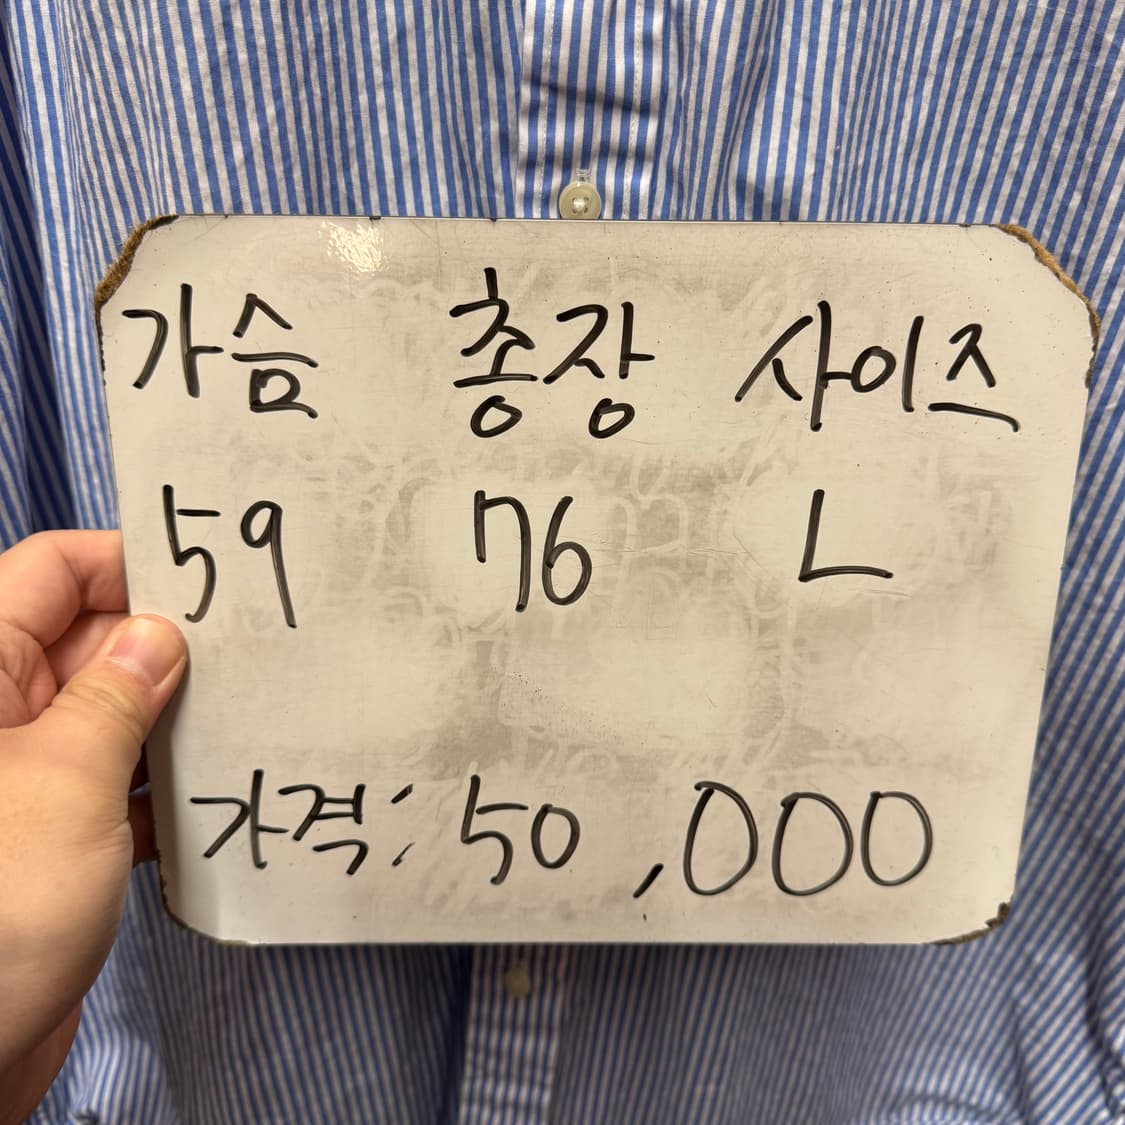 가슴 총장 사이즈
59 76 L
가격: 50,000